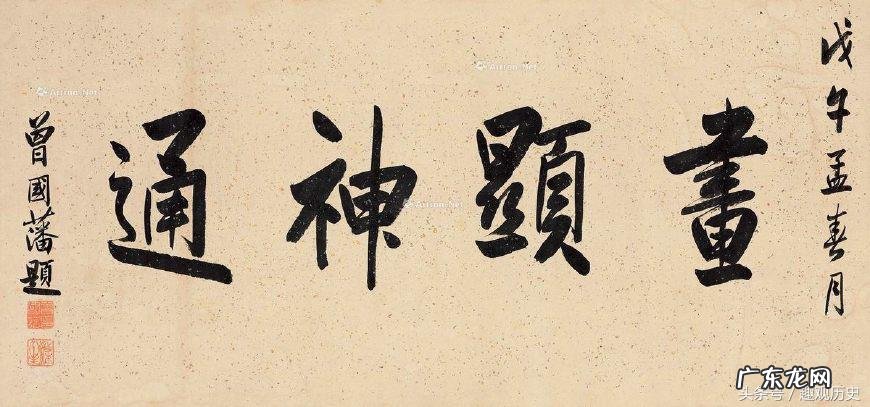 戊午孟春月
畫顯神通
曾國藩題
Artron.Net
Artron.Net
Artron.Net
广东龙网
头条号／趣观历史